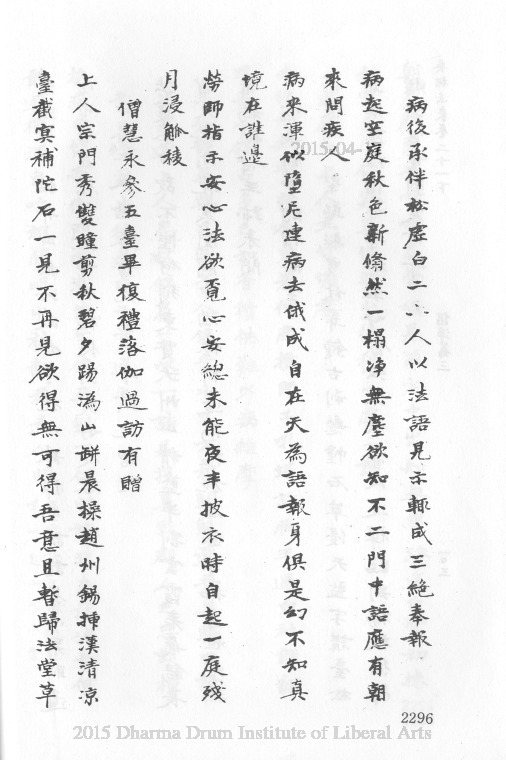 病後承伴松虛白二六人以法語見示輒成三絶奉報
病起空庭秋色新翛然一榻淨無塵欲知不二門中語應有朝
來問疾人
病來渾似墮尼連病去俄成自在天為語報身俱是幻不知真
境在誰邊
勞師指示安心法欲覓心安總未能夜半披衣時自起一庭殘
月浸觚稜
僧慧永參五臺畢復禮落伽過訪有贈
上人宗門秀雙瞳剪秋碧夕踢溈山缾晨操趙州錫挿漢清凉
臺截寞補陀石一見不再見欲得無可得吾意且暫歸法堂草
2015-04-
2296
2015 Dharma Drum Institute of Liberal Arts